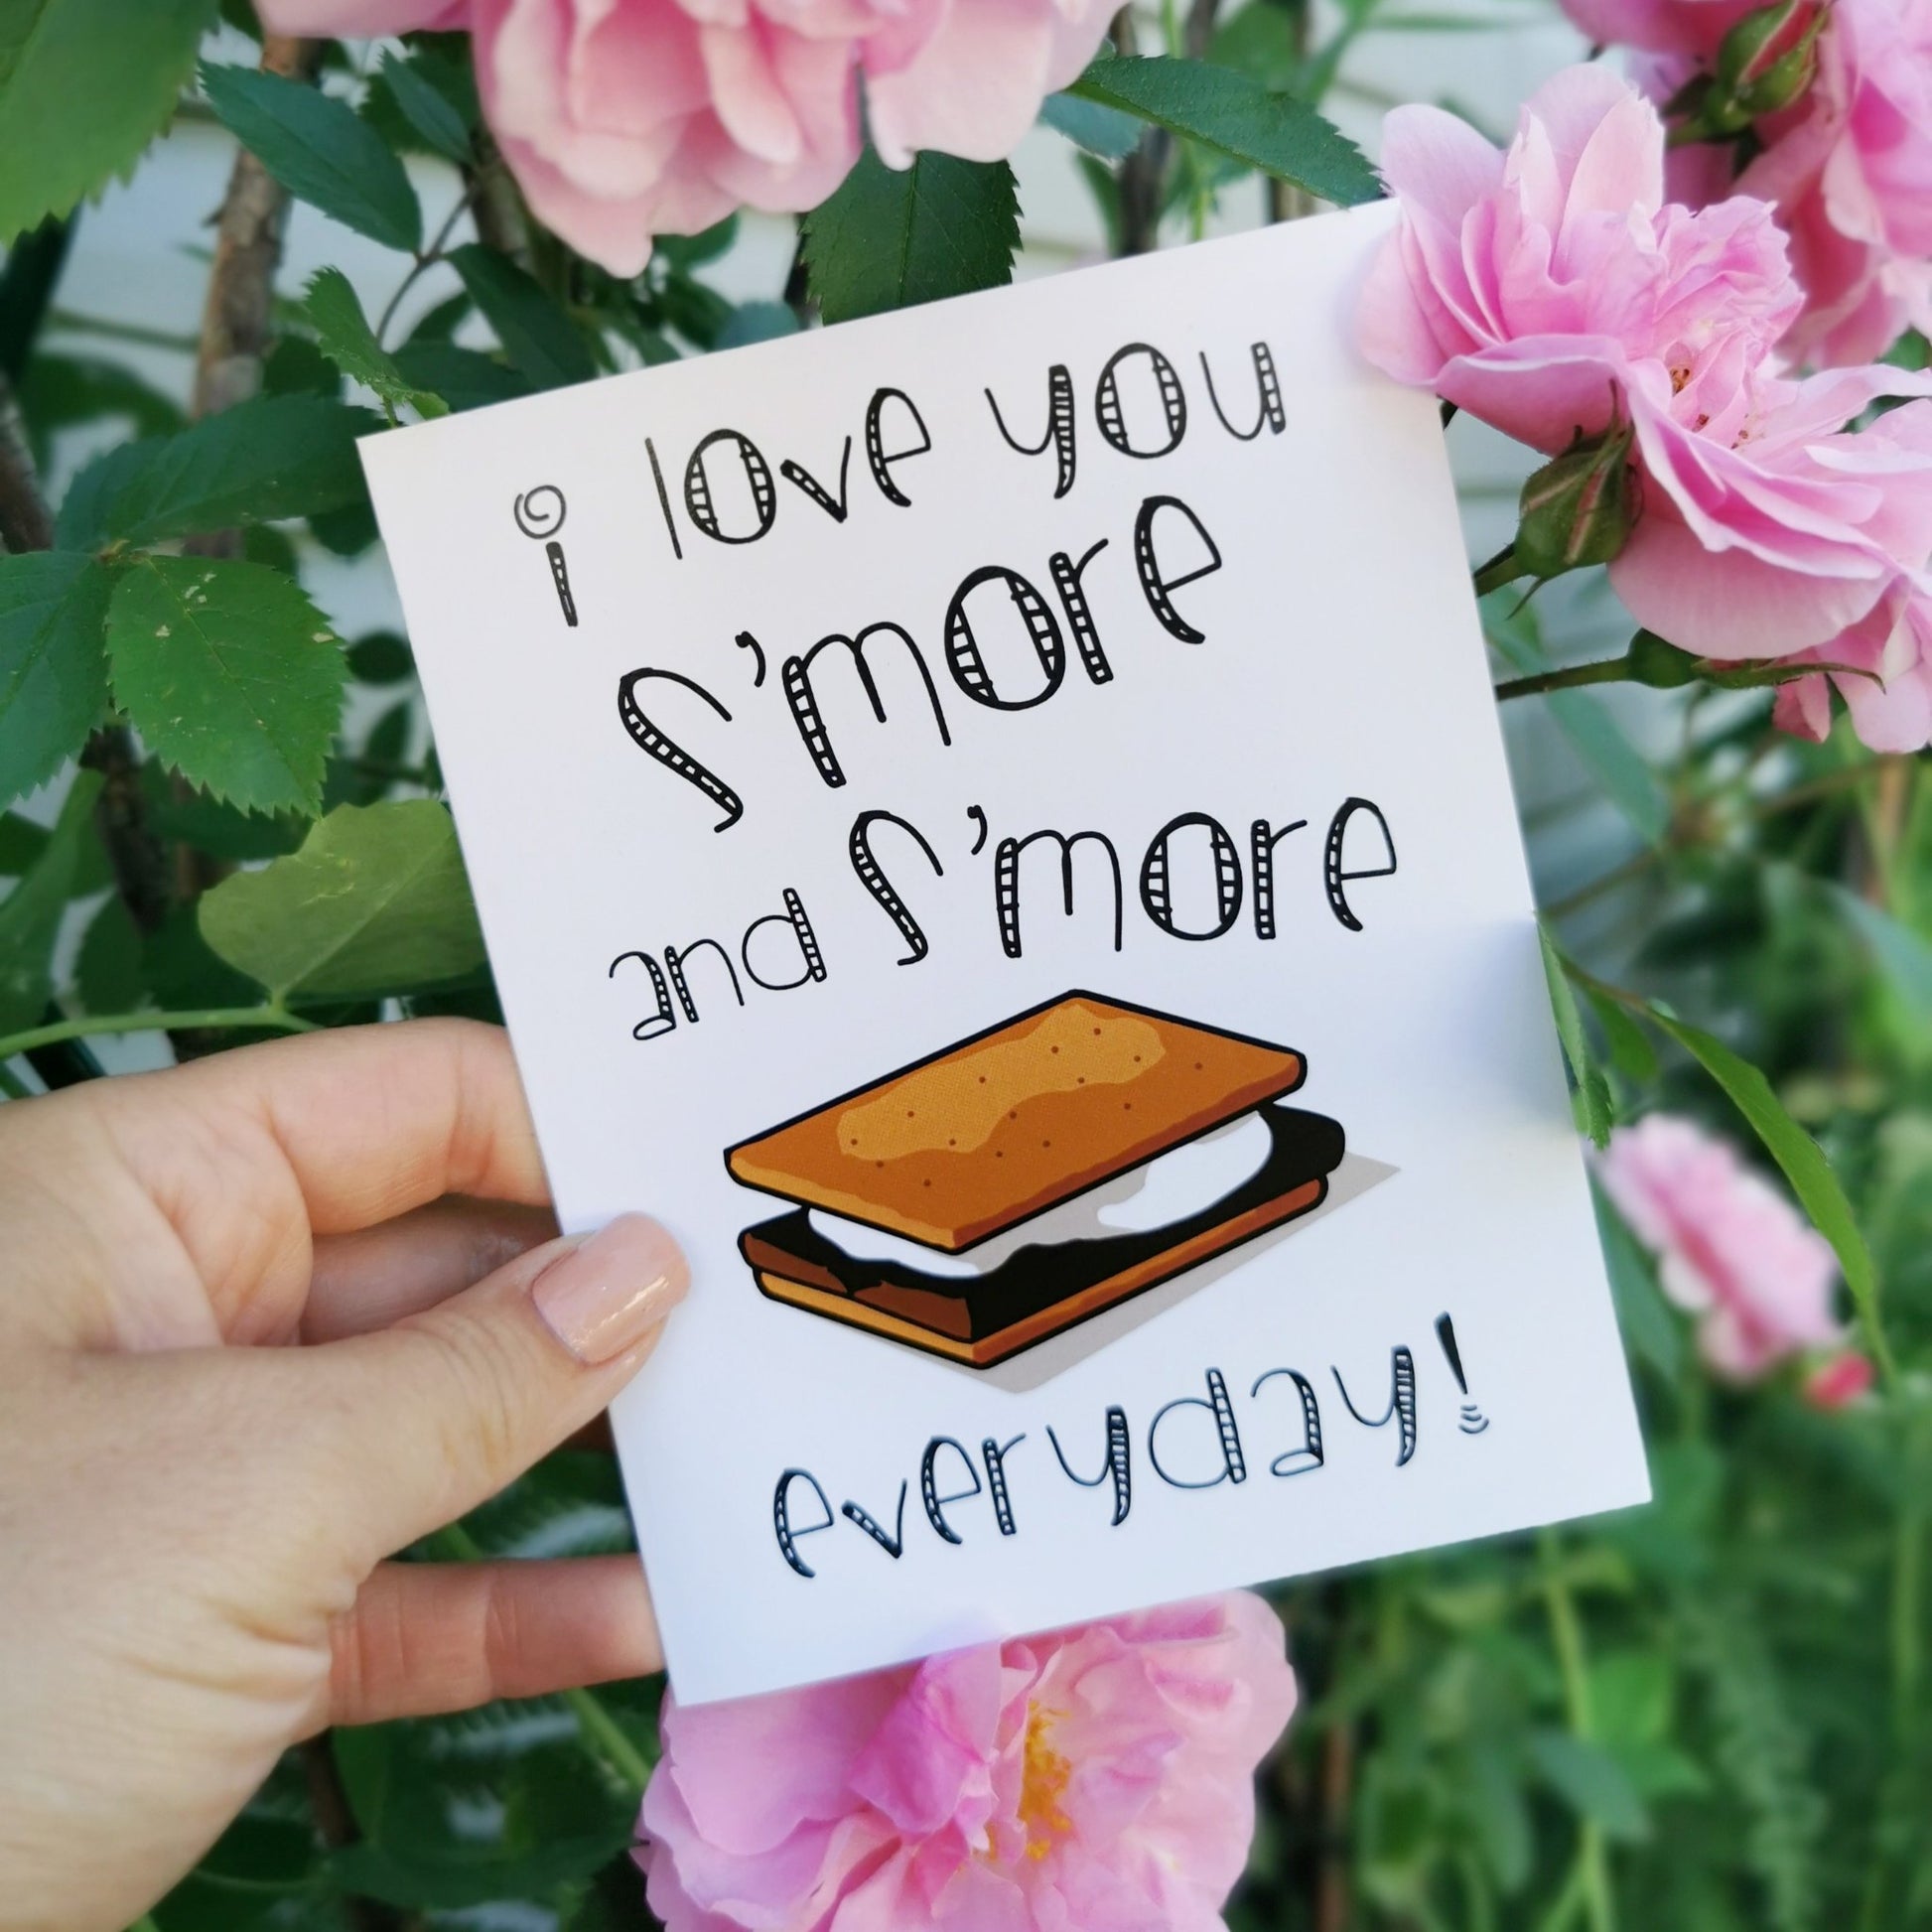 i love you
s'more
and s'more
everyday!